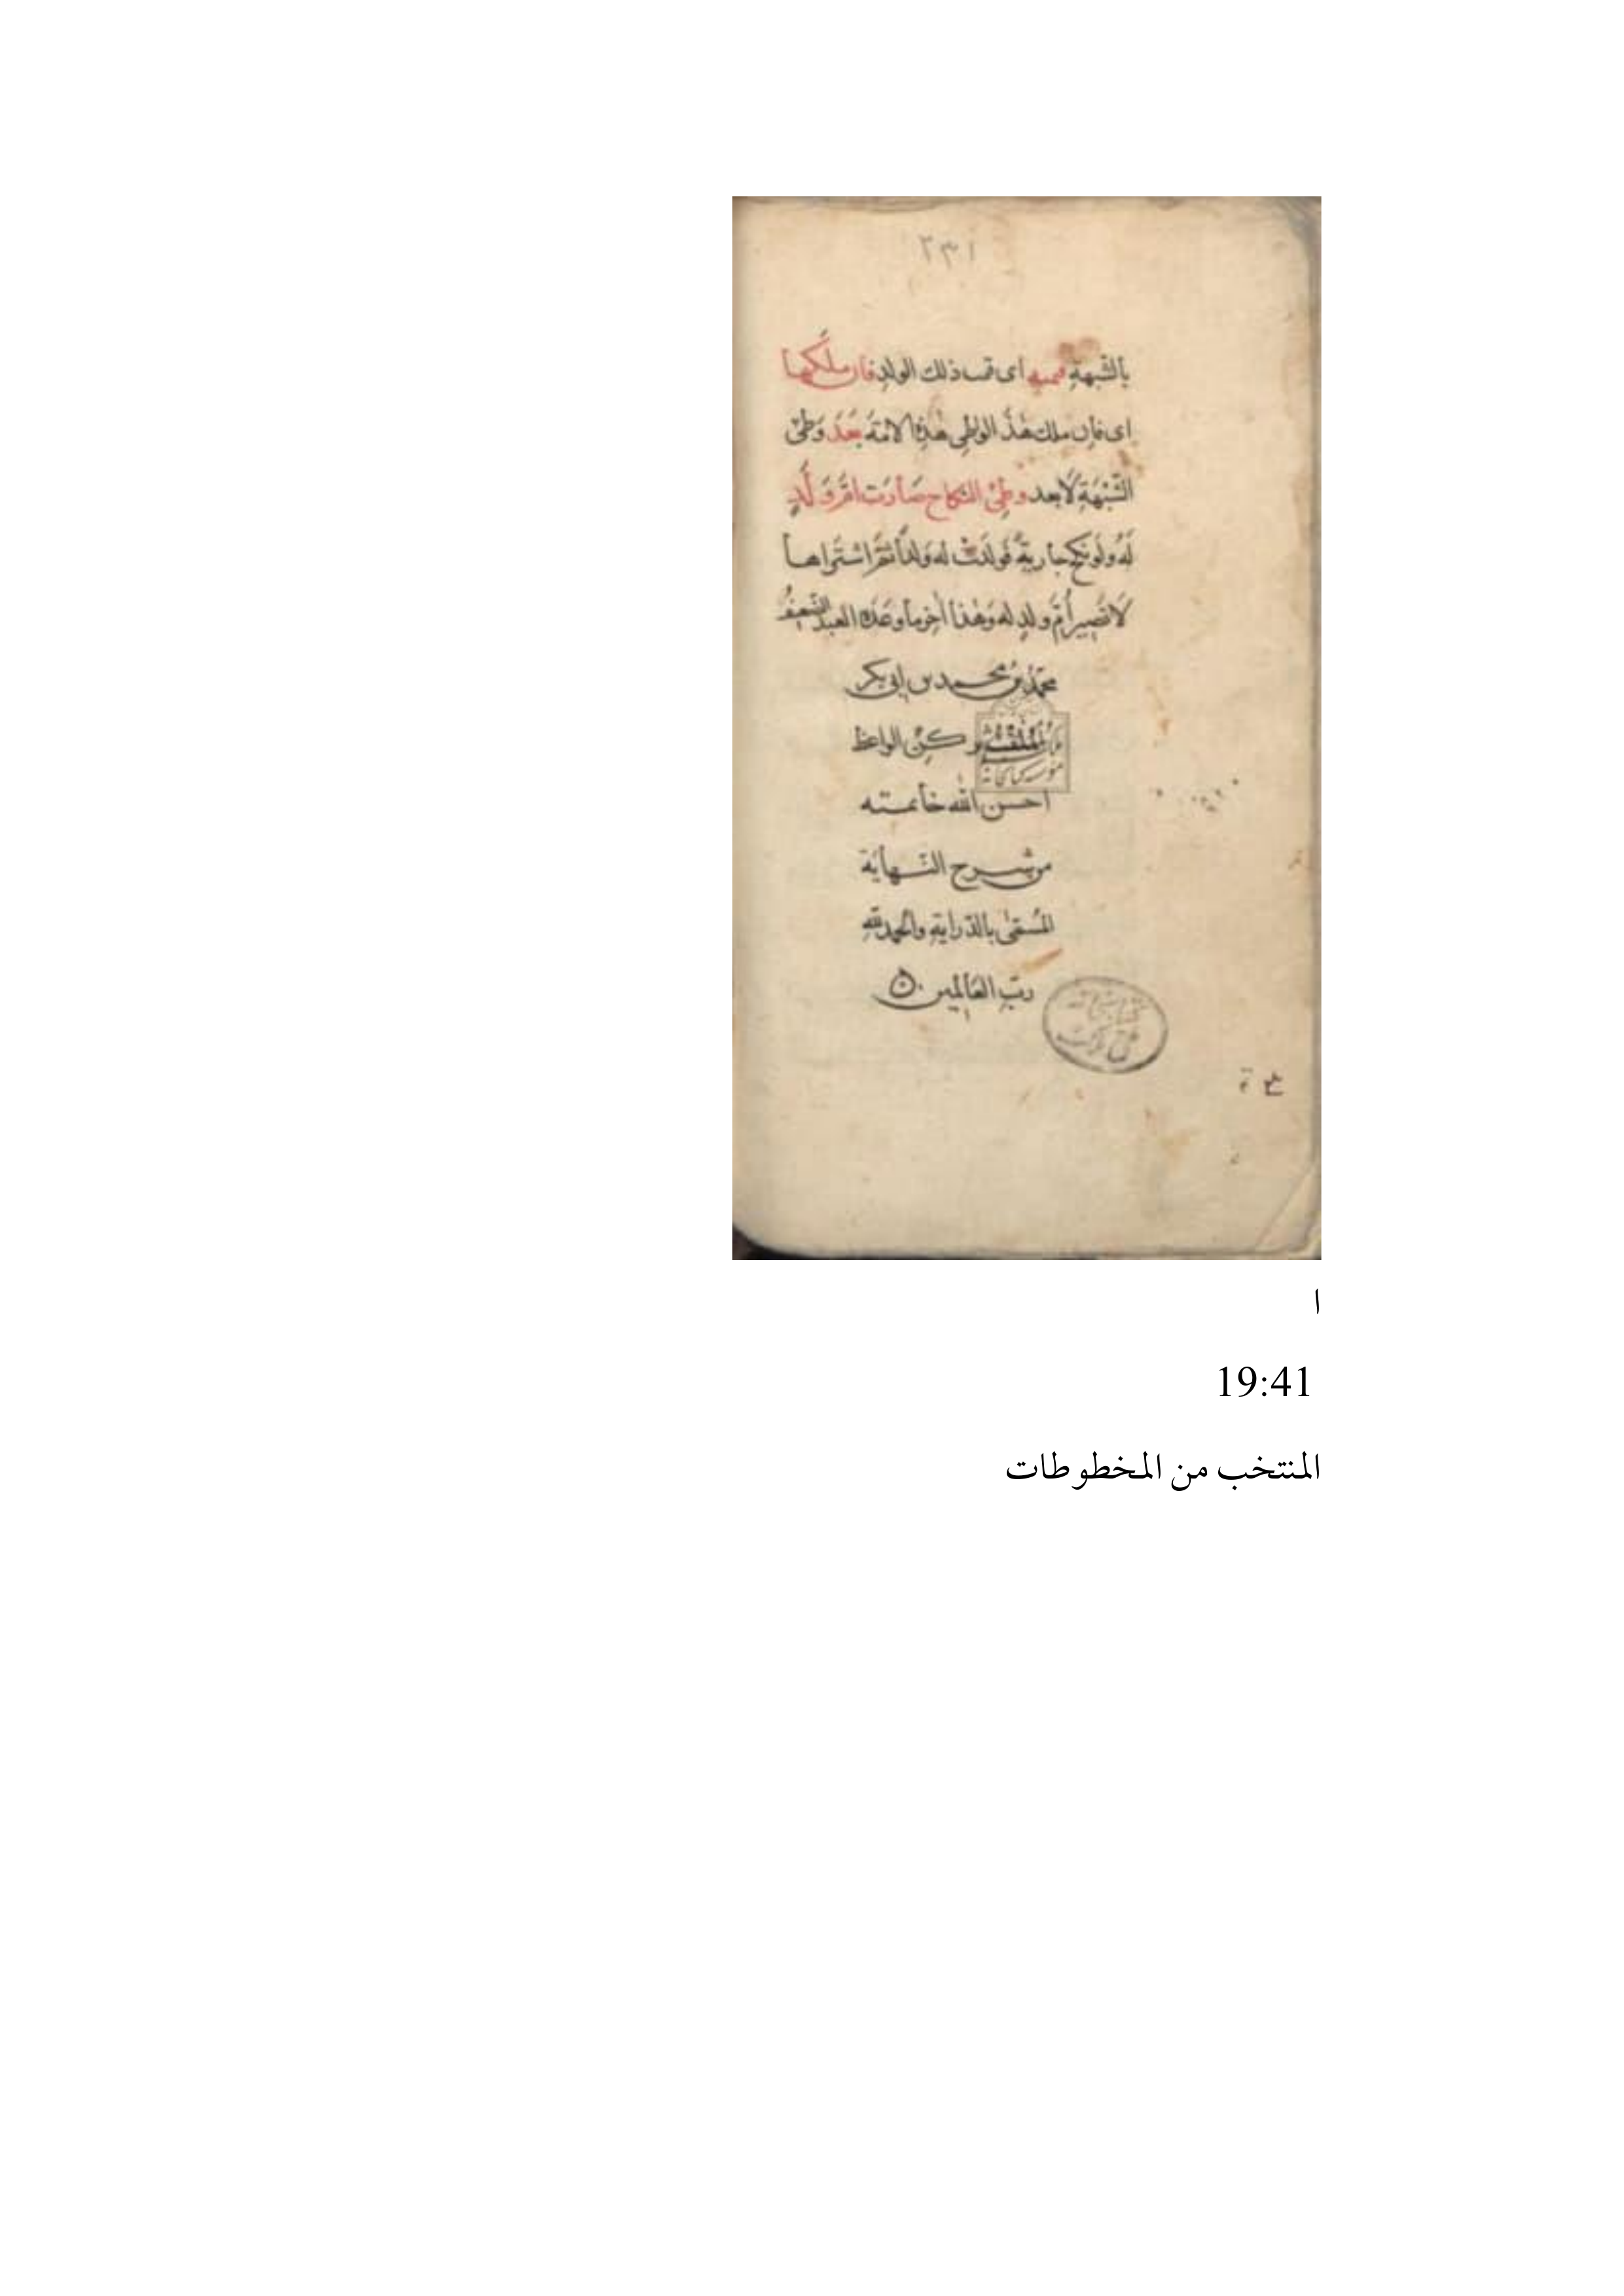 ٢٣١
بالشبهة قيمته اى قيمة ذلك الولدِ فان ملكها
اى فان ملك هذ الواطى هذه الامَة بَعدَ وَطىْ
الشُّبْهَةِ لَا بعد وطىْ النكاح صَارَت امَّ وَلَدٍ
لَهُ ولَو نكح جارية فَولَدَتْ له وَلداً ثمَّ اشتَراها
لَا تَصِير أُمَّ ولدٍ له وَهٰذا اٰخِر ما وعَده العبد الضعيف
محمّدُ بنُ محمد بن ابى بكر
المُلقّبْ بركنْ الواعظ
احسن الله خاتمته
من شرح النّهايَة
المُسَمّٰى بالدّرايةِ والحمد للهِ
ربّ العَالَمين
ا
19:41
المنتخب من المخطوطات